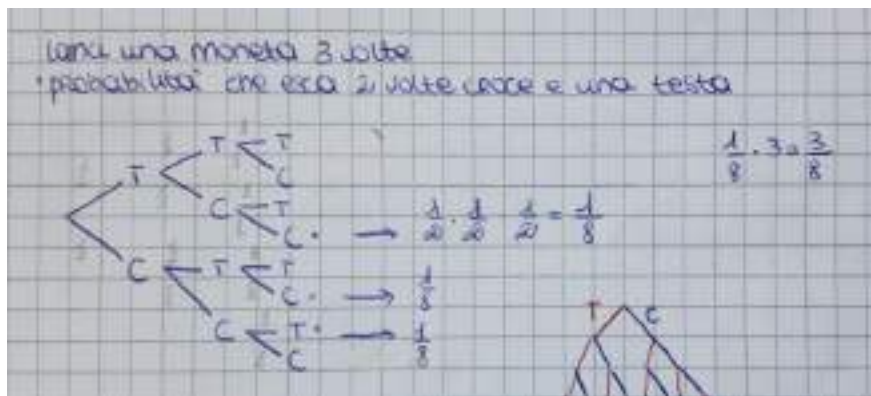 lanci una moneta 3 volte
• probabilità che esca 2 volte croce e una testa
1/8 · 3 = 3/8
T T T
C
C T
C • → 1/2 · 1/2 1/2 = 1/8
C T T
C • → 1/8
C T • → 1/8
C
T C